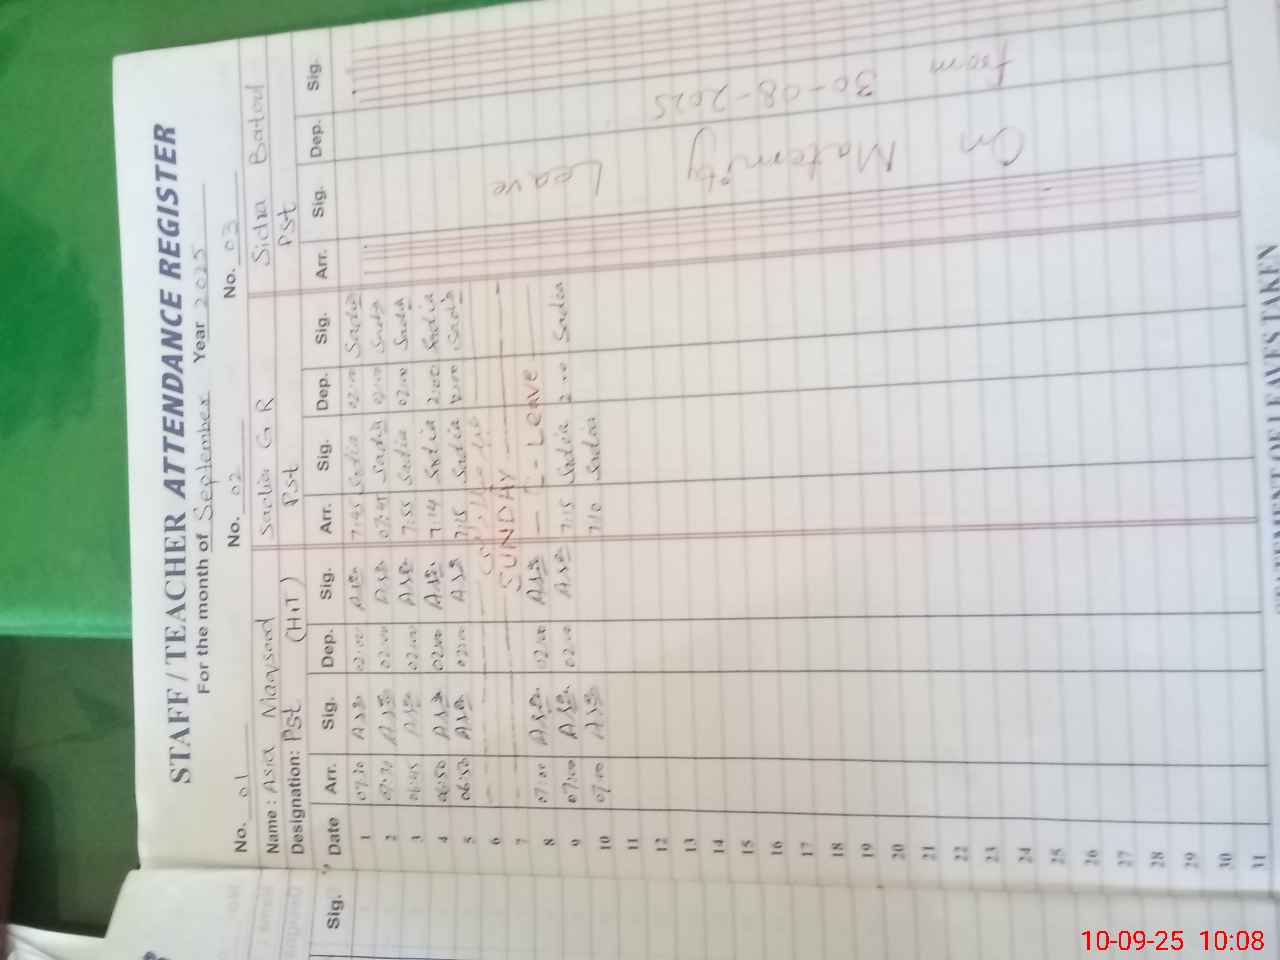 STAFF / TEACHER ATTENDANCE REGISTER
For the month of September Year 2025
No. 01 No. 02 No. 03
Name : Asia Maqsood Sadia G R Sidra Batool
Designation: Pst (H.T) Pst Pst
Date Arr. Sig. Dep. Sig. Arr. Sig. Dep. Sig. Arr. Sig. Dep. Sig.
1 07:30 02:00 7:45 Sadia 02:00 Sadia
2 07:30 02:00 07:45 Sadia 02:00 Sadia
3 06:45 02:00 7:55 Sadia 02:00 Sadia
4 06:50 02:00 7:14 Sadia 2:00 Sadia
5 06:50 02:00 7:15 Sadia Sadia
6
7 SUNDAY
8 07:00 02:00 Leave
9 07:00 02:00 7:15 Sadia 2:00 Sadia
10 07:00 710 Sadia
11
12
13
14
15
16
17
18
19
20
21
22
23
24
25
26
27
28
29
30
31
On Maternity Leave
from 30-08-2025
Sig.
STATEMENT OF LEAVES TAKEN
10-09-25 10:08